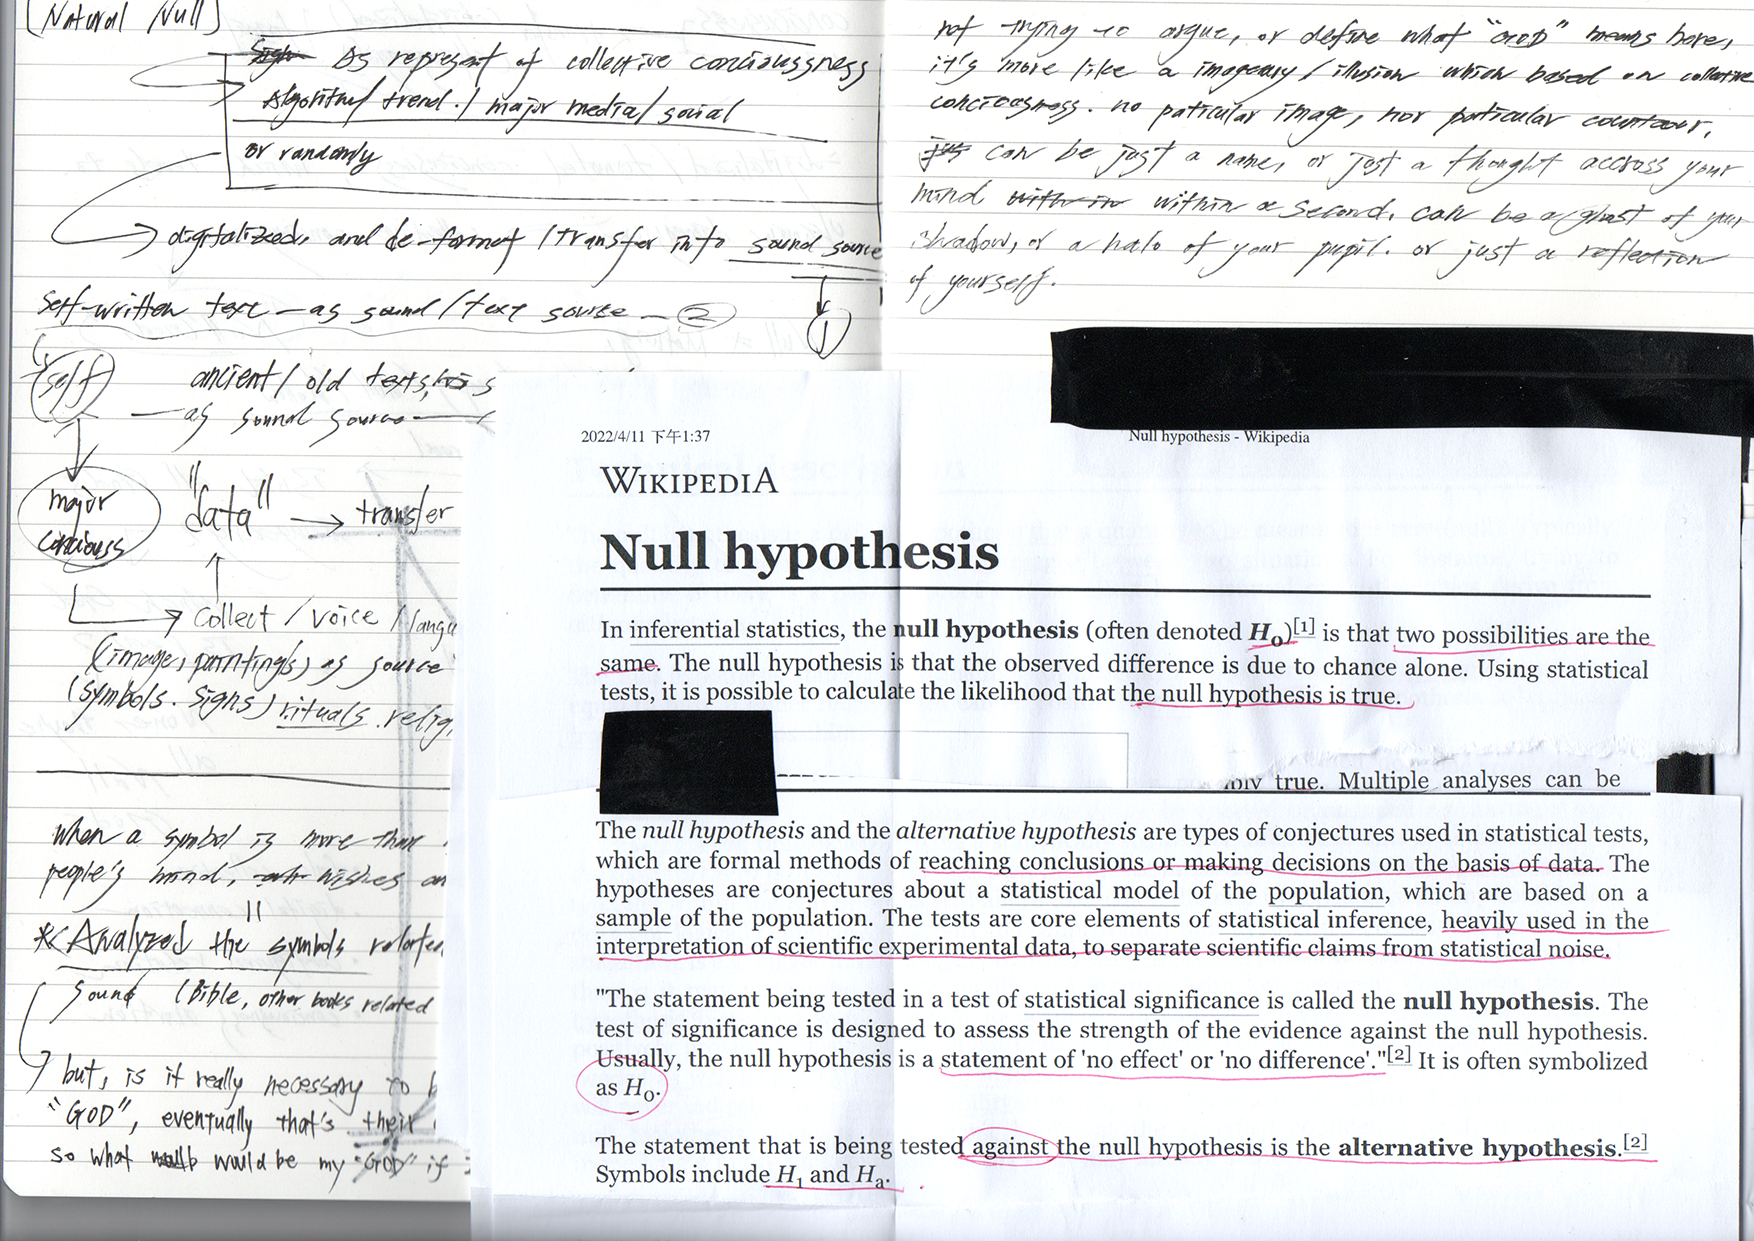 [Natural Null]
As represent of collective concioussness
Algoritm/ trend./ major media/ social
or randomly
digitalized, and de-format / transfer into sound source
1
self-written text — as sound / text source — 2
self
ancient / old texts,
— as sound source —
major
consciouss
"data" → transfer
collect / voice / langu
(image, paintings) as source
(symbols. signs) rituals. relig
when a symbol is more than
people's mind, wishes an
* Analyzed the symbols related
sound (Bible, other books related
but, is it really necessary to b
"GOD", eventually that's their
so what would be my "GOD" if
not trying to argue, or define what "GOD" means here,
it's more like a imageary / illusion which based on collective
conciousness. no paticular image, nor paticular countour,
can be just a name, or just a thought accross your
mind within a second. can be a ghost of your
shadow, or a halo of your pupil. or just a reflection
of yourself.
2022/4/11 下午1:37
Null hypothesis - Wikipedia
WIKIPEDIA
Null hypothesis
In inferential statistics, the null hypothesis (often denoted H0)[1] is that two possibilities are the
same. The null hypothesis is that the observed difference is due to chance alone. Using statistical
tests, it is possible to calculate the likelihood that the null hypothesis is true.
true. Multiple analyses can be
The null hypothesis and the alternative hypothesis are types of conjectures used in statistical tests,
which are formal methods of reaching conclusions or making decisions on the basis of data. The
hypotheses are conjectures about a statistical model of the population, which are based on a
sample of the population. The tests are core elements of statistical inference, heavily used in the
interpretation of scientific experimental data, to separate scientific claims from statistical noise.
"The statement being tested in a test of statistical significance is called the null hypothesis. The
test of significance is designed to assess the strength of the evidence against the null hypothesis.
Usually, the null hypothesis is a statement of 'no effect' or 'no difference'."[2] It is often symbolized
as H0.
The statement that is being tested against the null hypothesis is the alternative hypothesis.[2]
Symbols include H1 and Ha.